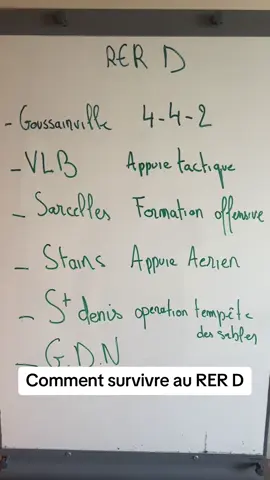 RER D
- Goussainville 4-4-2
- VLB Appuie tactique
- Sarcelles Formation offensive
- Stains Appuie Aerien
- St denis operation tempête
des sables
- G.D.N
Comment survivre au RER D